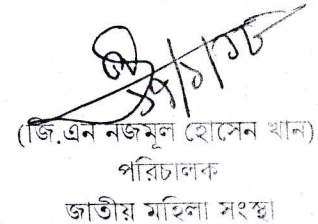 (জি.এন নজমূল হোসেন খান)
পরিচালক
জাতীয় মহিলা সংস্থা